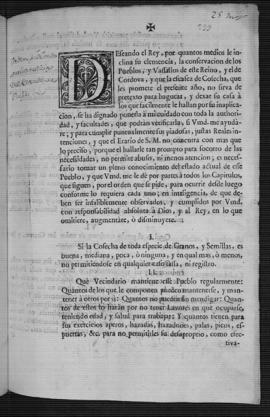 25 May
DEseando el Rey, por quantos medios le in-
clina su clemencia, la conservacion de los
Pueblos, y Vassallos de este Reino, y el de
Cordova, y que la escasez de Cosecha, que
les promete el presente año, no sirva de
pretexto para hoguera, y dexar su casa à
los que facilmente le hallan por su inaplica-
cion, se ha dignado ponerla à mi cuidado con toda la authori-
dad, y facultades, que podràn verificarla, si Vmd. me ayuda-
re; y para cumplir puntualmente sus piadosas, justas Reales in-
tenciones, y que el Erario de S. M. no concurra con mas que
lo preciso, porque el hallarle tan prompto para socorro de las
necesidades, no permite abusos, ni menos atencion; es neces-
sario tomar un pleno conocimiento del estado actual de esse
Pueblo, y que Vmd. me le dè por partes à todos los Capitulos,
que siguen, por el orden que se pide, para ocurrir desde luego
conforme lo requiera cada uno; en inteligencia, de que de-
ben ser infaliblemente observados, y cumplidos por Vmd.
con responsabilidad absoluta à Dios, y al Rey, en lo que
omitiere, augmentare, ò disminuyere.
I.
Si la Cosecha de toda especie de Granos, y Semillas, es
buena, mediana, poca, ò ninguna, y en qual mas, ò menos,
no permitiendose en qualquiera ni registro.
II.
Que Vecindario mantiene esse Pueblo regularmente:
Quantos de los que le componen pueden mantenerse, y man-
tener à otros por sì: Quantos no pueden sin mendigar: Quan-
tos de estos lo haràn por no tener Labores en que ocuparse,
teniendo edad, y salud para trabajar: Y quantos tienen para
sus exercicios aperos, hazadas, hazadones, palas, picos, es-
puertas, &c. para no permitirles su desapropio, como efec-
tiva-